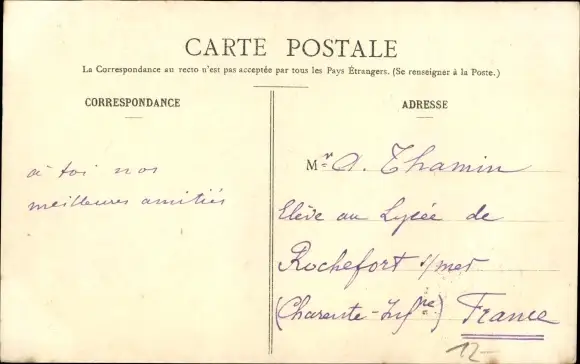 CARTE POSTALE
La Correspondance au recto n'est pas acceptée par tous les Pays Étrangers. (Se renseigner à la Poste.)
CORRESPONDANCE
à toi nos
meilleures amitiés
ADRESSE
Mr A. Thamin
Elève au Lycée de
Rochefort s/mer
(Charente-Infre) France
12-